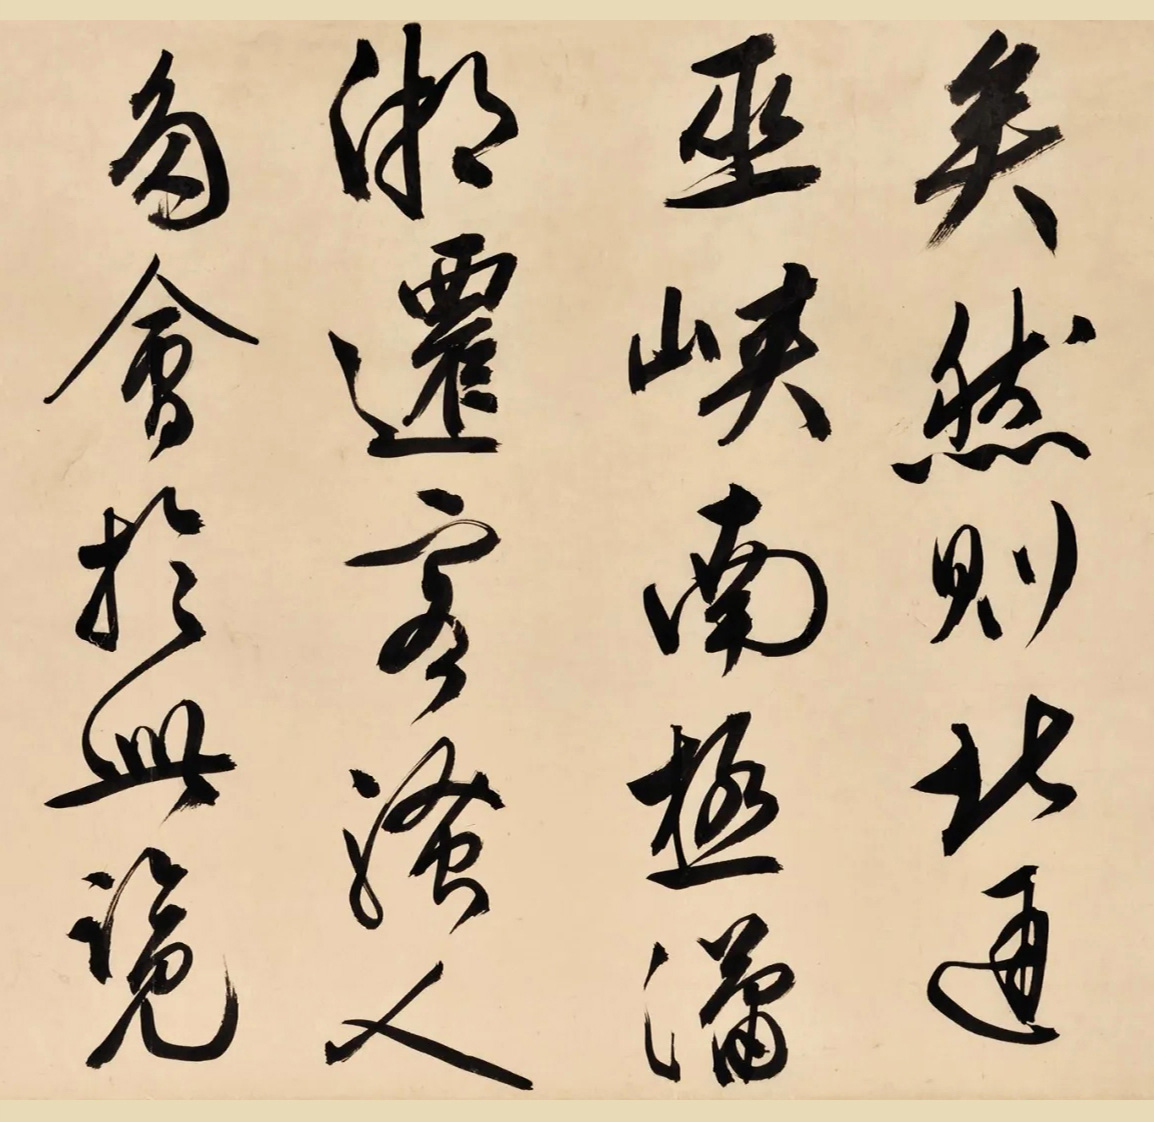 矣然則北通
巫峽南極瀟
湘遷客騷人
多會於此覽